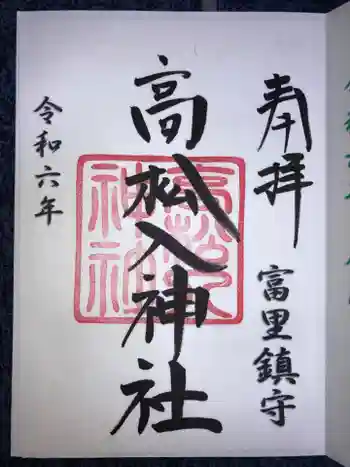 奉拝
富里鎮守
高松入神社
高松入
神社
令和六年